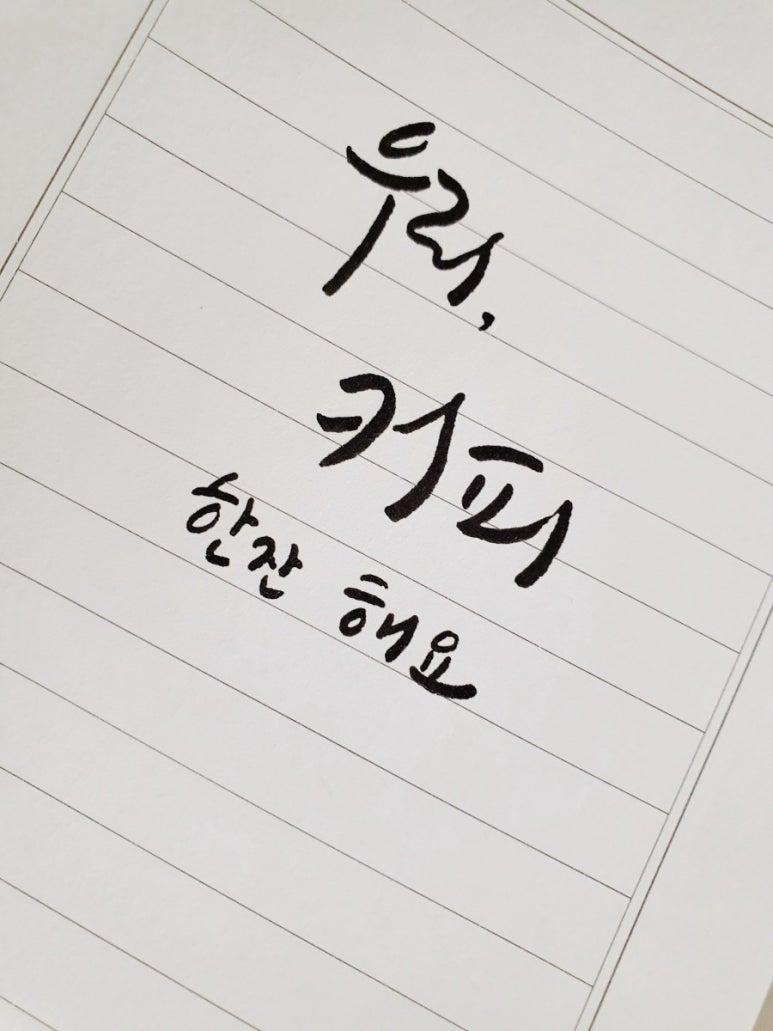 우리,
커피
한잔 해요